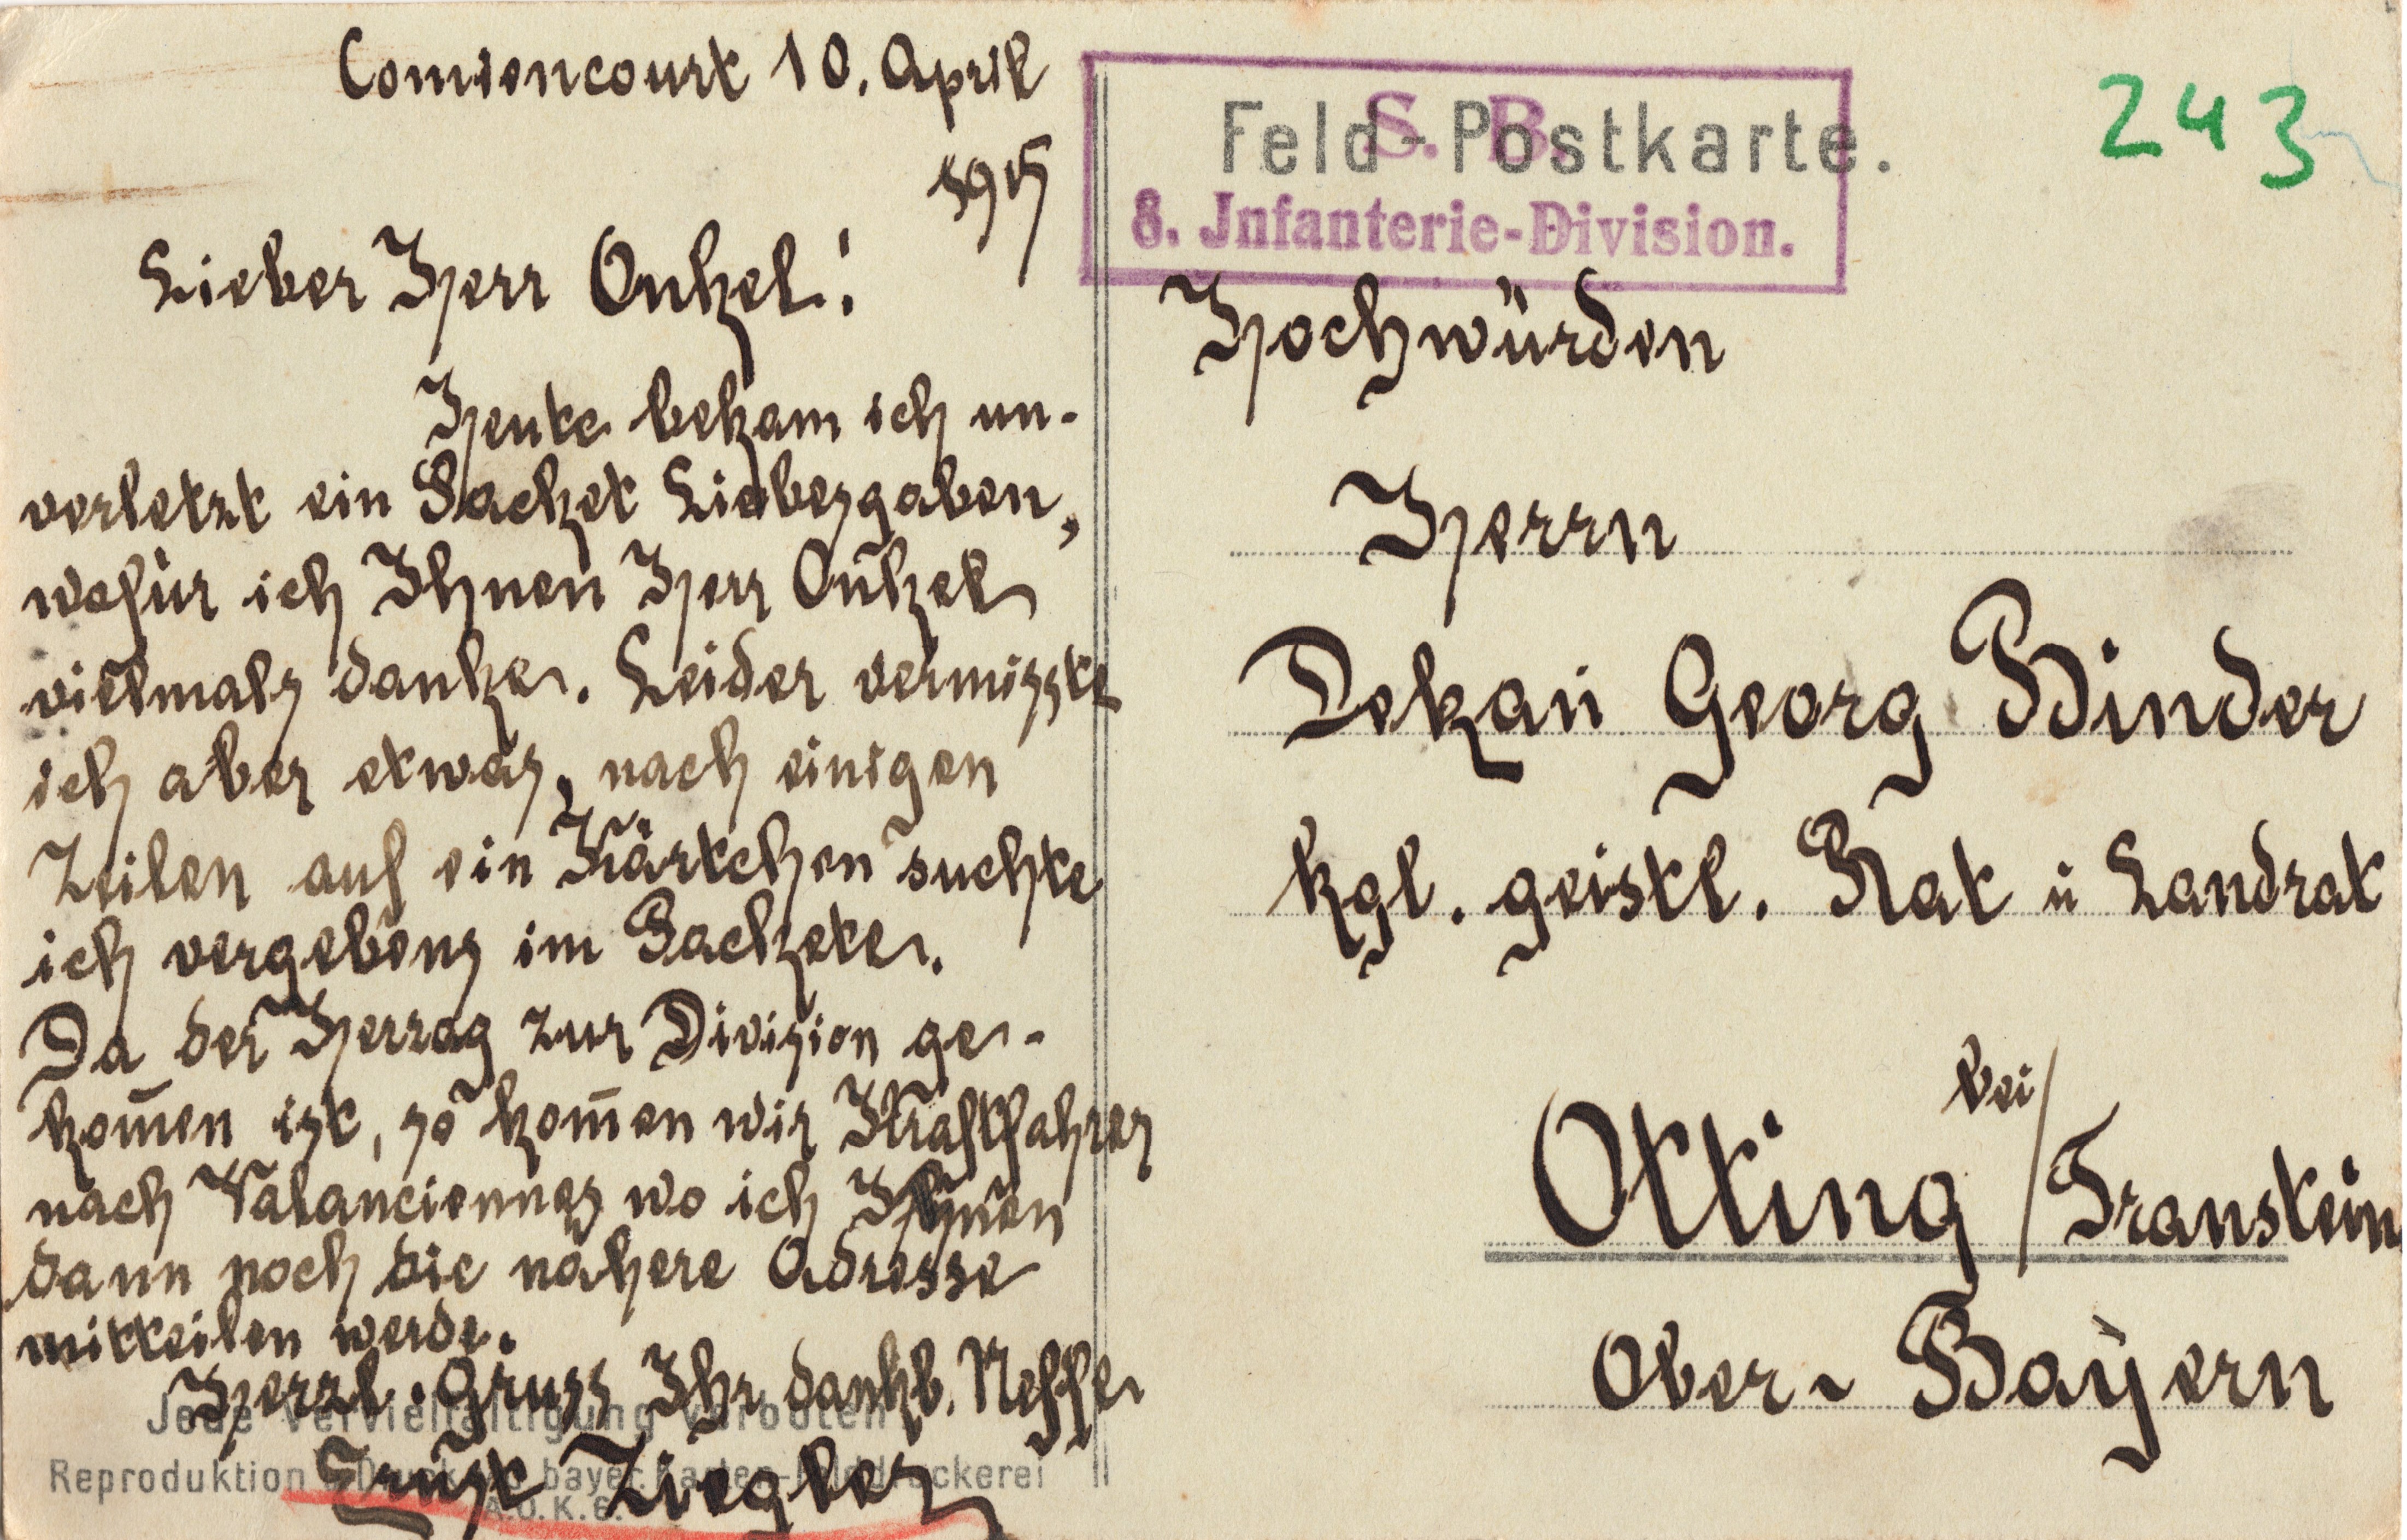 Comiencourt 10. April
1915
Lieber Herr Onkel!
Heute bekam ich un-
verletzt ein Packet Liebesgaben,
wofür ich Ihnen Herr Onkel
vielmals danke. Leider vermisste
ich aber etwas, nach einigen
Zeilen auf ein Kärtchen suchte
ich vergebens im Packete.
Da der Herzog zur Division ge-
kom̄en ist, so kom̄en wir Kraftfahrer
nach Valanciennes wo ich Ihnen
dann noch die nähere Adresse
mitteilen werde.
Herzl. Gruss Ihr dankb. Neffe
Ernst Ziegler
Jede Vervielfältigung verboten
Reproduktion bayer. Karten-Felddruckerei
A.O.K.6.
Feld-Postkarte.
S. B.
8. Jnfanterie-Division.
243
Hochwürden
Herrn
Dekan Georg Binder
kgl. geistl. Rat ū Landrat
Otting bei/Traunstein
Ober-Bayern